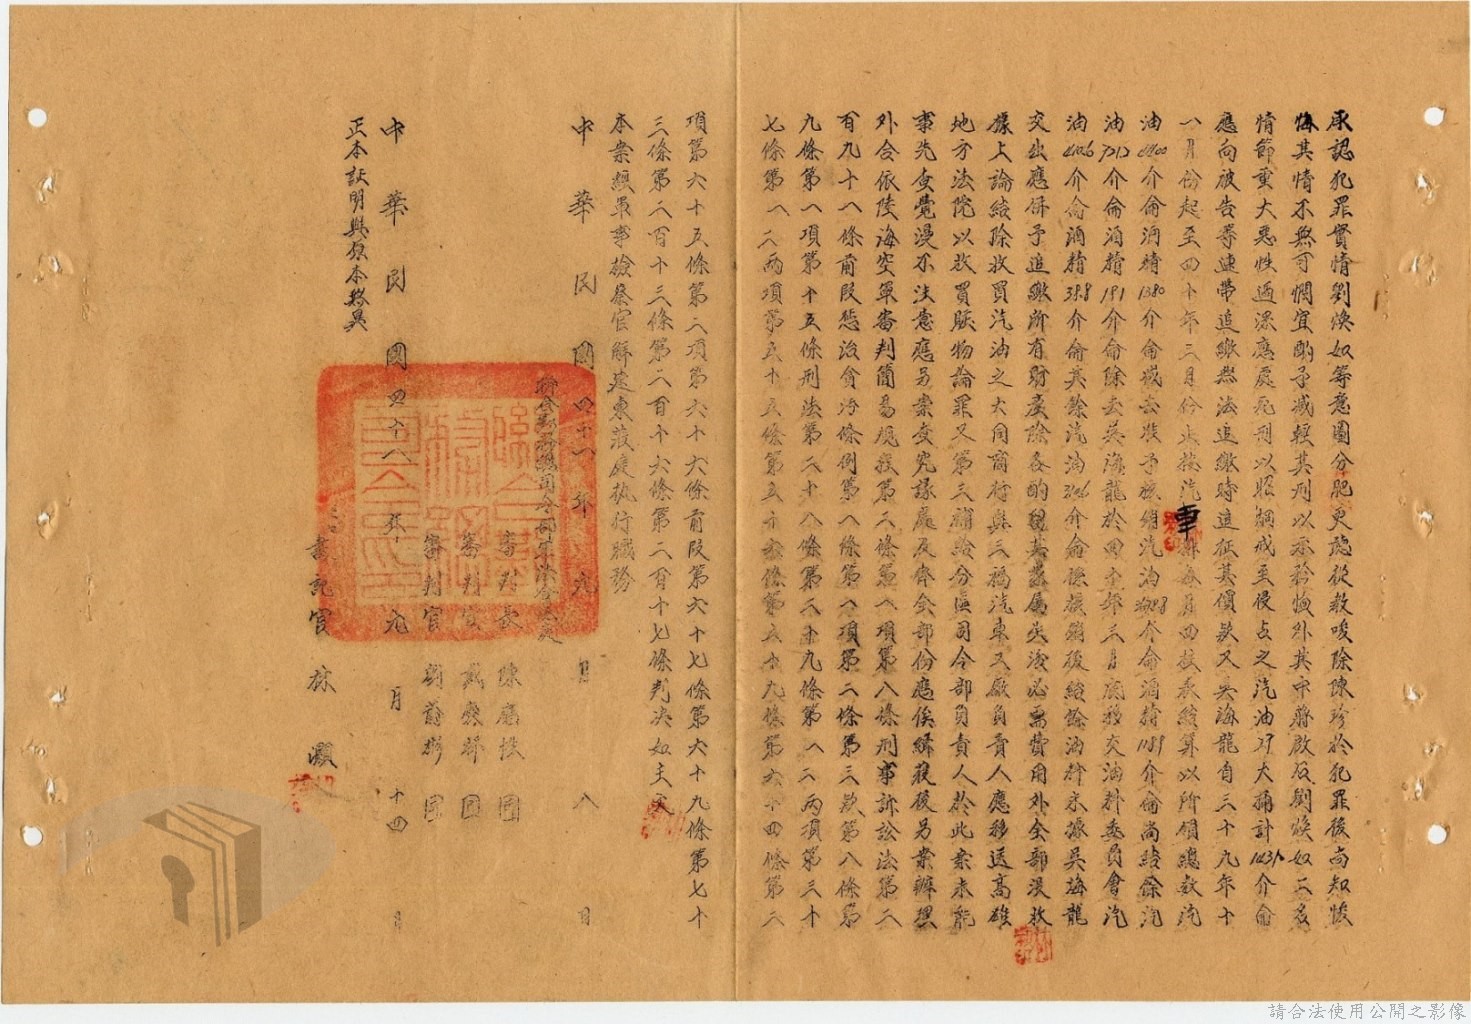 承認犯罪實情劉煥如等意圖分肥更聽從教唆除陳珍於犯罪後尚知悛
悔其情不無可憫宜酌予減輕其刑以示矜恤外其中蔣啟反劉煥如二名
情節重大惡性過深應處死刑以昭烱戒至侵占之汽油37大桶計 介侖
應向被告等連帶追繳無法追繳時追征其價款又吳海龍自三十九年十
一月份起至四十年三月份止按汽車 每月四 表結算以所領總數汽
油 介侖酒精1380介侖減去准予核銷汽油 介侖酒精1189介侖尚結餘汽
油7212介侖酒精191介侖除去吳海龍於四十年三月底移交油料委員會汽
油 介侖酒精 介侖其餘汽油 介侖 核銷後結餘油料未據吳海龍
交出應併予追繳所有財產除各酌留其家屬生活必需費用外全部沒收
據上論結除收買汽油之大同商行與三福汽車工廠負責人應移送高雄
地方法院以收買贓物論罪又第三補給分區司令部負責人於此案未能
事先查覺漫不注意應另案查究議處及齊全部份應俟緝獲後另案辦理
外合依陸海空軍審判簡易規程第二條第一項第八條刑事訴訟法第二
百九十一條前段懲治貪污條例第一條第一項第二條第三款第八條第
九條第一項第十五條刑法第二十八條第二十九條第一二兩項第三十
七條第一二兩項第五十五條第五十六條第五十九條第六十四條第二
項第六十五條第二項第六十六條前段第六十七條第六十九條第七十
三條第二百十三條第二百十六條第二百十七條判決如主文
本案經軍事檢察官解建東蒞庭執行職務
中華民國四十一年九月八日
聯合勤務總司令部軍法合議庭
審判長 陳 
審判官 
審判官 
中華民國四十一年九月十四日
正本証明與原本無異
書記官 林灝
請合法使用公開之影像